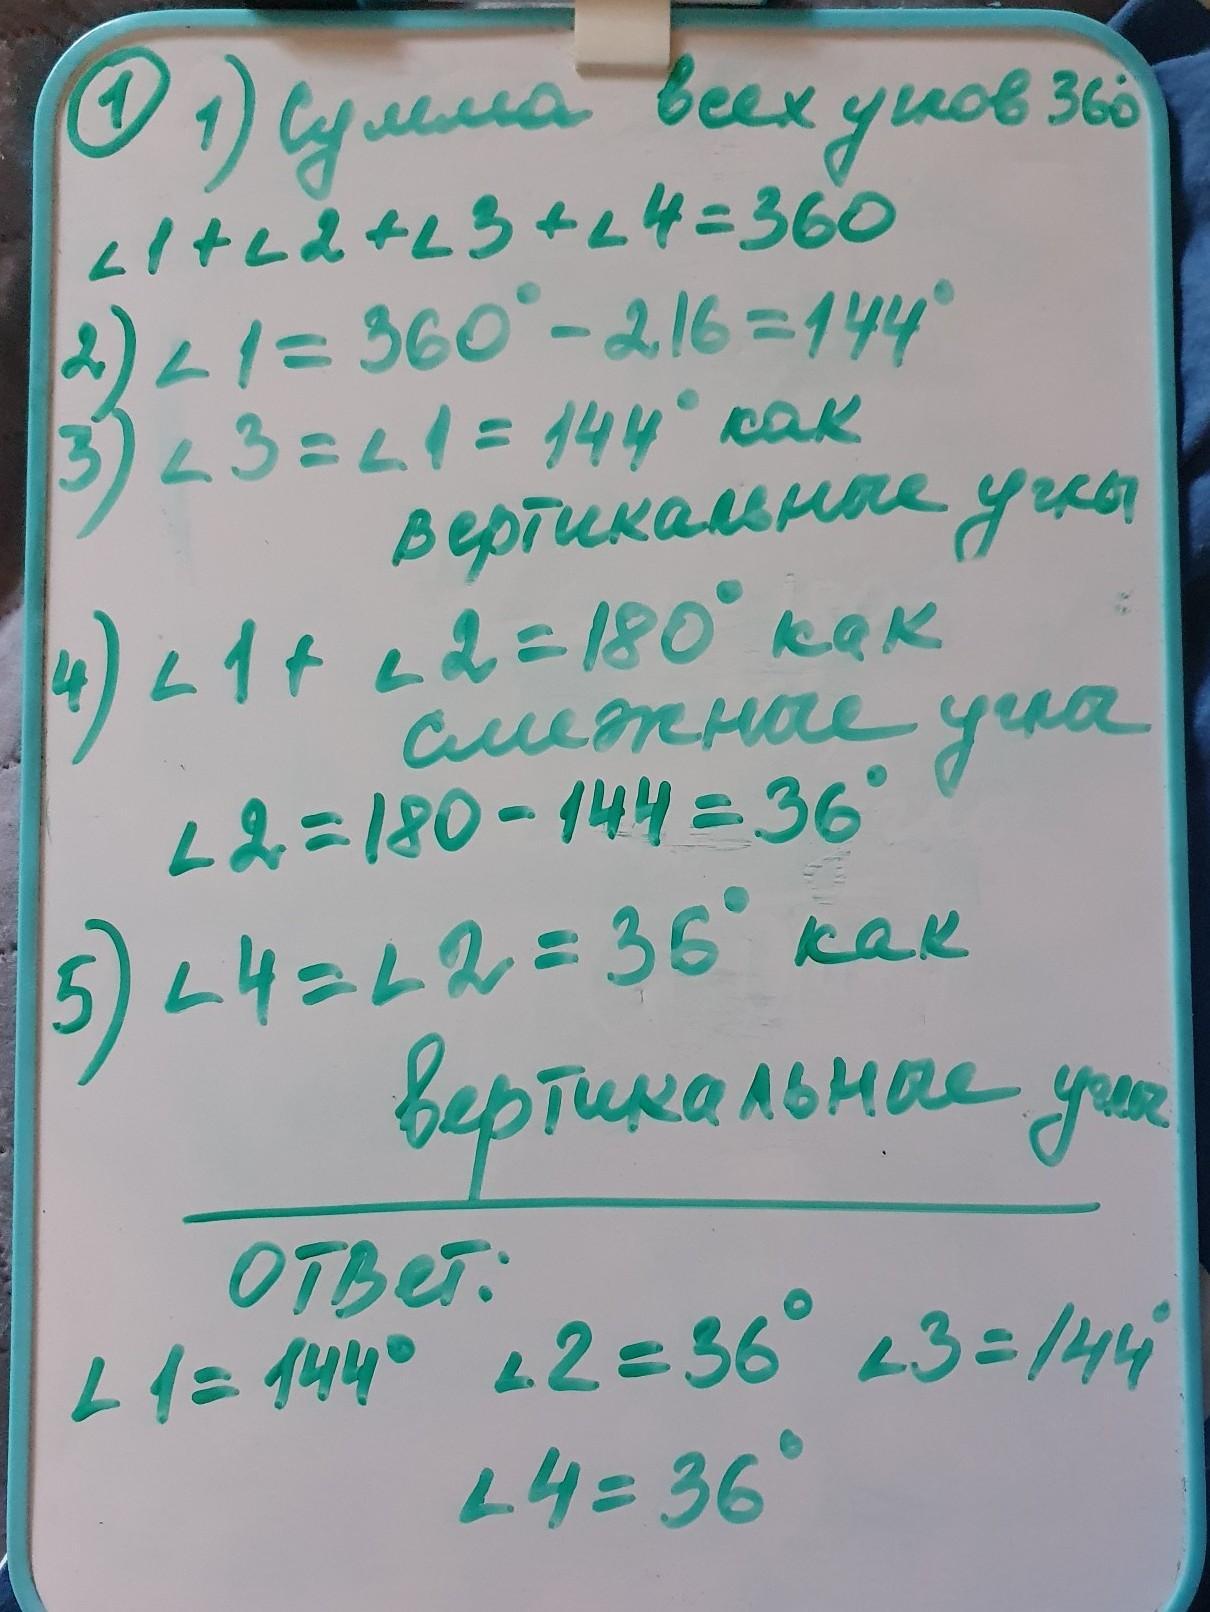 ① 1) Сумма всех углов 360°
∠1+∠2+∠3+∠4=360
2) ∠1=360°-216=144°
3) ∠3=∠1=144° как
вертикальные углы
4) ∠1+ ∠2=180° как
смежные углы
∠2=180-144=36°
5) ∠4=∠2=36° как
вертикальные углы
Ответ:
∠1=144° ∠2=36° ∠3=144°
∠4=36°